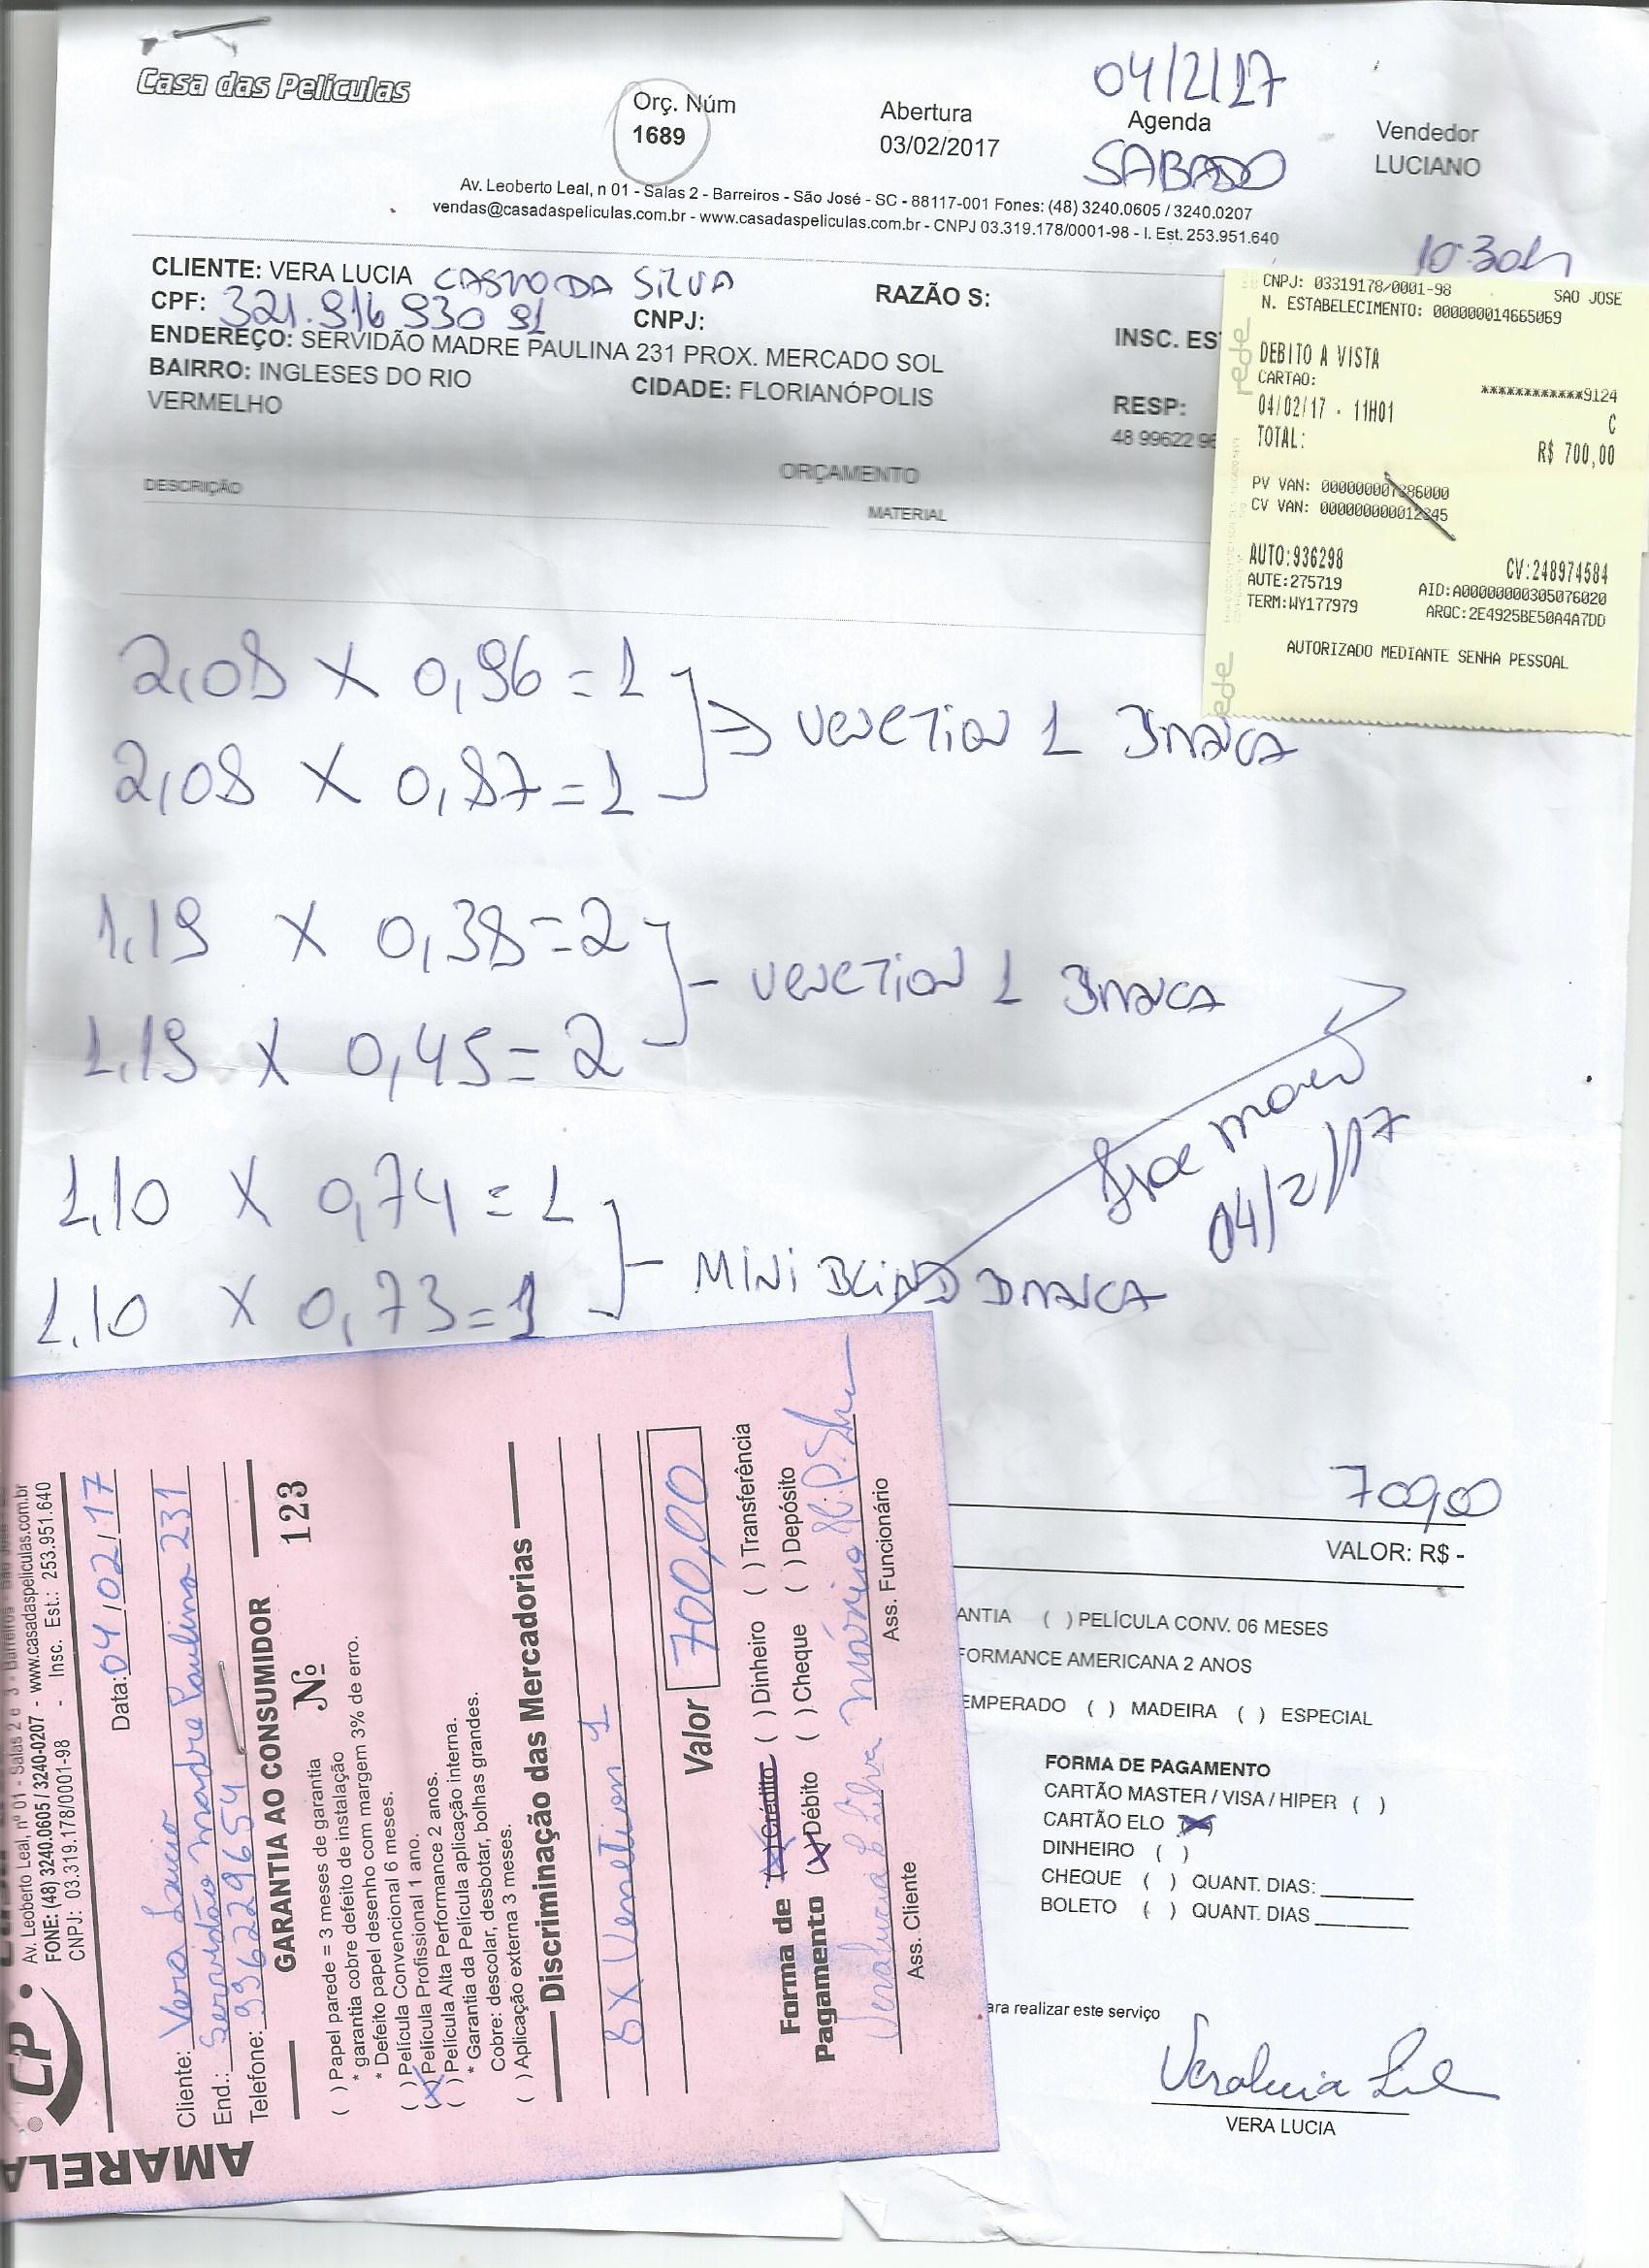 Casa das Películas
Orç. Núm
1689
Abertura
03/02/2017
04/2/17
Agenda
SABADO
Vendedor
LUCIANO
Av. Leoberto Leal, n 01 - Salas 2 - Barreiros - São José - SC - 88117-001 Fones: (48) 3240.0605 / 3240.0207
vendas@casadaspeliculas.com.br - www.casadaspeliculas.com.br - CNPJ 03.319.178/0001-98 - I. Est. 253.951.640
10:30h
CLIENTE: VERA LUCIA CASTRO DA SILVA
RAZÃO S:
CPF: 321.916 930 91
CNPJ:
INSC. ES
ENDEREÇO: SERVIDÃO MADRE PAULINA 231 PROX. MERCADO SOL
BAIRRO: INGLESES DO RIO
VERMELHO
CIDADE: FLORIANÓPOLIS
RESP:
48 99622 96
ORÇAMENTO
DESCRIÇÃO
MATERIAL
CNPJ: 03319178/0001-98
SAO JOSE
N. ESTABELECIMENTO: 000000014665069
rede
DEBITO A VISTA
CARTAO:
************9124
04/02/17 - 11H01
C
TOTAL:
R$ 700,00
PV VAN: 000000007386000
CV VAN: 000000000012345
AUTO:936298
CV:248974584
AUTE:275719
AID:A0000000305076020
TERM:WY177979
ARQC:2E4925BE50A4A7DD
AUTORIZADO MEDIANTE SENHA PESSOAL
ede
2,08 X 0,96 = 1
2,08 X 0,87 = 1
VENETION 1 BRANCA
1,19 X 0,38 = 2
1,19 X 0,45 = 2
VENETION 1 BRANCA
1,10 X 0,74 = 1
1,10 X 0,73 = 1
MINI BLIND BRANCA
04/2/17
700,00
VALOR: R$ -
ANTIA ( ) PELÍCULA CONV. 06 MESES
FORMANCE AMERICANA 2 ANOS
EMPERADO ( ) MADEIRA ( ) ESPECIAL
FORMA DE PAGAMENTO
CARTÃO MASTER / VISA / HIPER ( )
CARTÃO ELO (X)
DINHEIRO ( )
CHEQUE ( ) QUANT. DIAS:
BOLETO ( ) QUANT. DIAS
ara realizar este serviço
Veralucia
VERA LUCIA
AMARELA
CP
Av. Leoberto Leal, nº 01 - Salas 2 e 3 - Barreiros - São José
FONE: (48) 3240.0605 / 3240-0207 - www.casadaspeliculas.com.br
CNPJ: 03.319.178/0001-98 - Insc. Est.: 253.951.640
Data: 04/02/17
Cliente: Vera Lucia
End.: Servidão Madre Paulina 231
Telefone: 996229654
GARANTIA AO CONSUMIDOR
Nº 123
( ) Papel parede = 3 meses de garantia
* garantia cobre defeito de instalação
* Defeito papel desenho com margem 3% de erro.
( ) Película Convencional 6 meses.
(X) Película Profissional 1 ano.
( ) Película Alta Performance 2 anos.
* Garantia da Película aplicação interna.
Cobre: descolar, desbotar, bolhas grandes.
( ) Aplicação externa 3 meses.
Discriminação das Mercadorias
8 X Venetion 1
Valor 700,00
Forma de Pagamento
(X) Crédito ( ) Dinheiro ( ) Transferência
(X) Débito ( ) Cheque ( ) Depósito
Veralucia Silva
Ass. Cliente
Ass. Funcionário